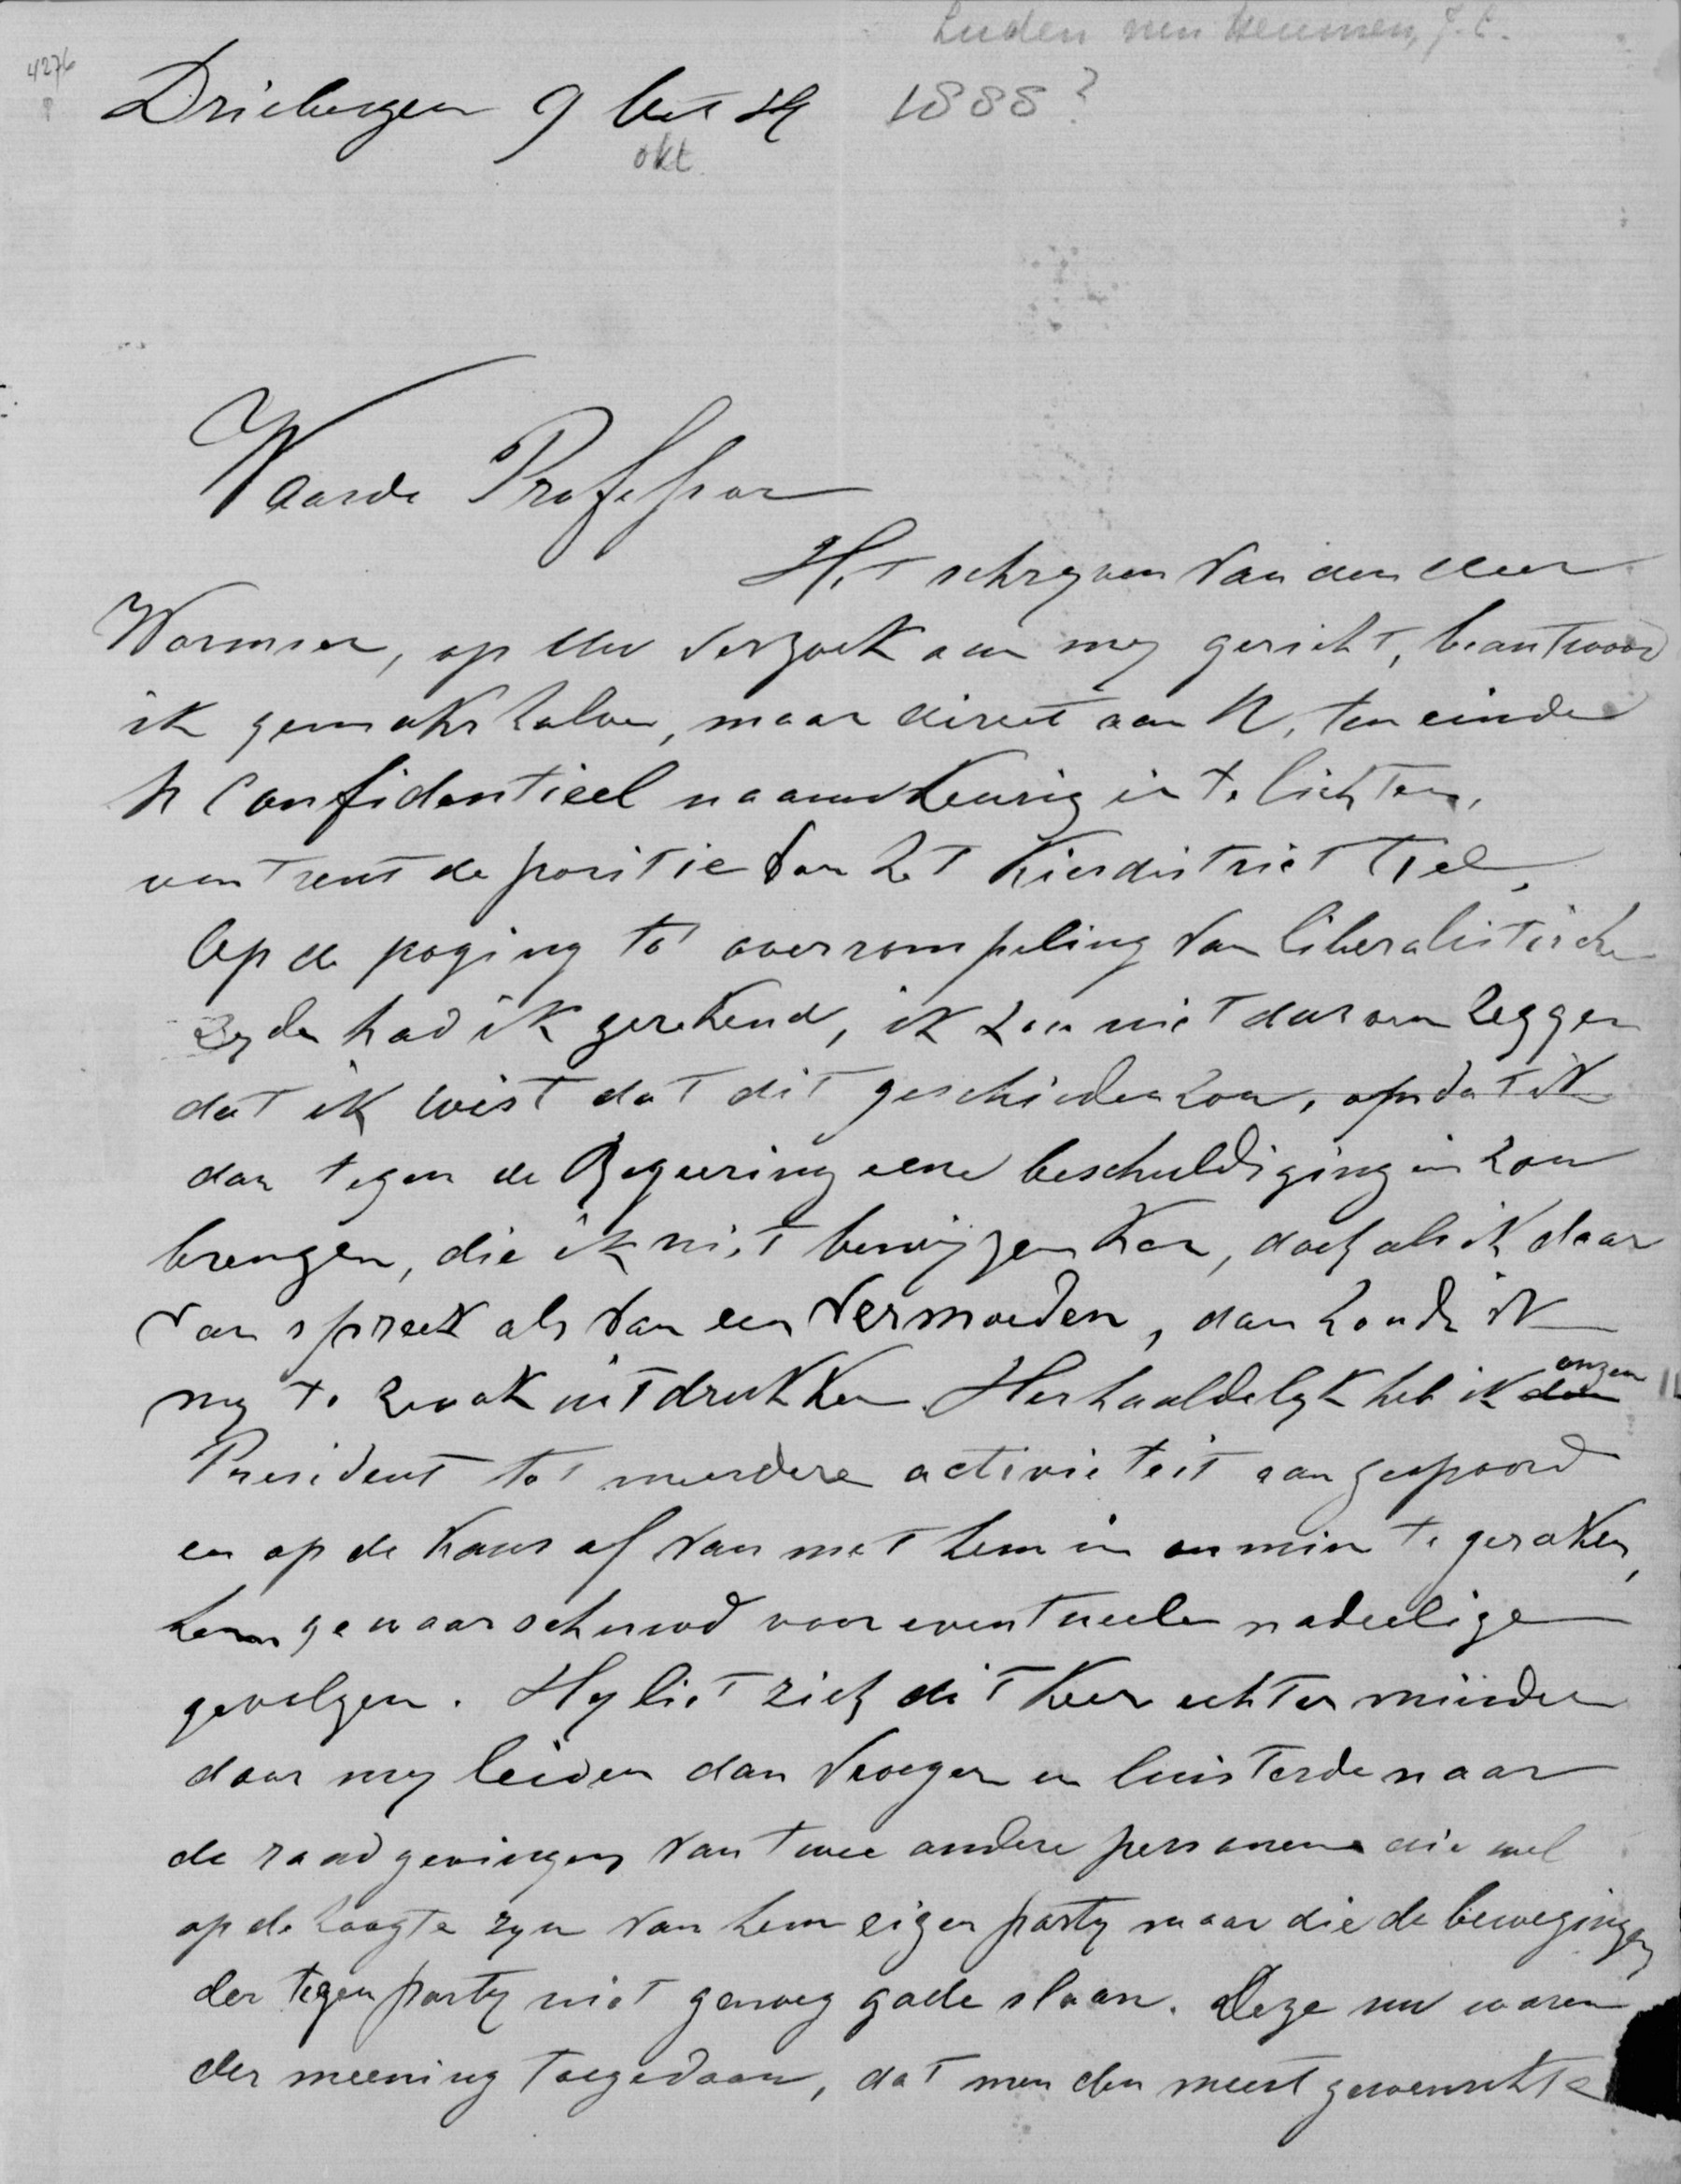 Luden van Heumen, J. C.
4276
Driebergen 9 Oct 84 1888?
okt
Waarde Professor
Het schryven van den Heer
Wormser, op Uw verzoek aan my gericht, beantwoord
ik gemakshalve, maar direct aan U, ten einde
U Confidentieel naauwkeurig in te lichten,
omtrent de positie van het Kiesdistrict Tiel,
Op de poging tot overrompeling van liberalistische
zyde had ik gerekend, ik zou niet durven zeggen
dat ik wist dat dit geschieden zou, opdat ik
dan tegen de Regeering eene beschuldiging in zou
brengen, die ik niet bewyzen kan, doch als ik daar
van spreek als van een vermoeden, dan zoude ik
my te zwak uitdrukken. Herhaaldelyk heb ik den onzen
President tot meerdere activiteit aangespoord
en op de kans af van met hem in onmin te geraken,
hem gewaarschuwd voor eventueele nadeelige
gevolgen. Hy liet zich dit keer echter minder
door my leiden dan vroeger en luisterde naar
de raadgevingen van twee andere personen die wel
op de hoogte zyn van hem eigen party maar die de bewegingen
der tegenparty niet genoeg gade slaan. Deze nu waren
der meening toegedaan, dat men den meest gewenschte